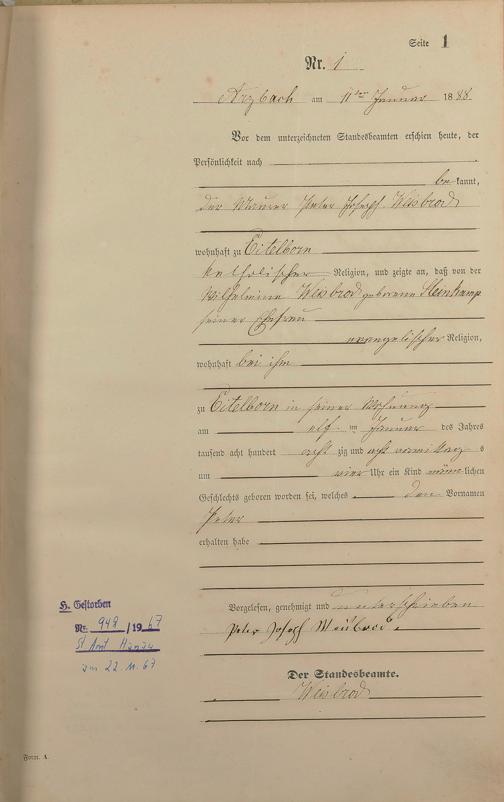 Seite 1
Nr. 1
Arzbach am 11ten Januar 1888.
Vor dem unterzeichneten Standesbeamten erschien heute, der
Persönlichkeit nach
bekannt,
der Maurer Peter Joseph Weisbrod
wohnhaft zu Eitelborn
katholischer Religion, und zeigte an, daß von der
Wilhelmine Weisbrod geborene Steinkamp
seiner Ehefrau
evangelischer Religion,
wohnhaft bei ihm
zu Eitelborn in seiner Wohnung
am elf ten Januar des Jahres
tausend acht hundert acht zig und acht vormittags
um vier Uhr ein Kind männlichen
Geschlechts geboren worden sei, welches den Vornamen
Peter
erhalten habe
Vorgelesen, genehmigt und unterschrieben
Peter Joseph Weisbrod.
Der Standesbeamte.
Weisbrod
H. Gestorben
Nr. 948/1967
St Amt
am 22.11.67
Form. A.